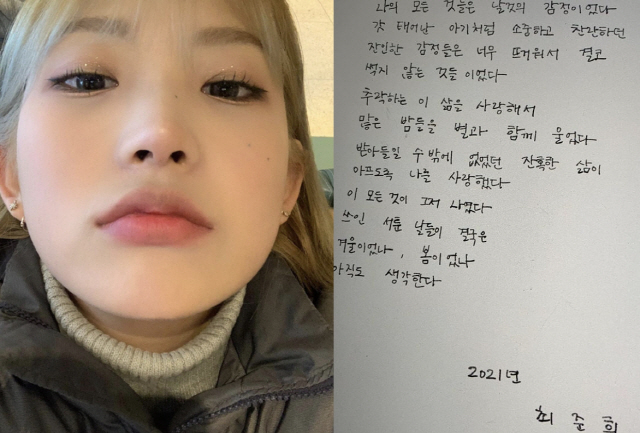 나의 모든 것들은 날것의 감정이었다
갓 태어난 아기처럼 소중하고 찬란하던
잔인한 감정들은 너무 뜨거워서 결코
썩지 않는 것들이었다
추락하는 이 삶을 사랑해서
많은 밤들을 별과 함께 울었다
받아들일 수밖에 없었던 잔혹한 삶이
아프도록 나를 사랑했다
이 모든 것이 그저 시였다
쓰인 서툰 날들이 결국은
겨울이었나, 봄이었나
아직도 생각한다
2021년
최준희